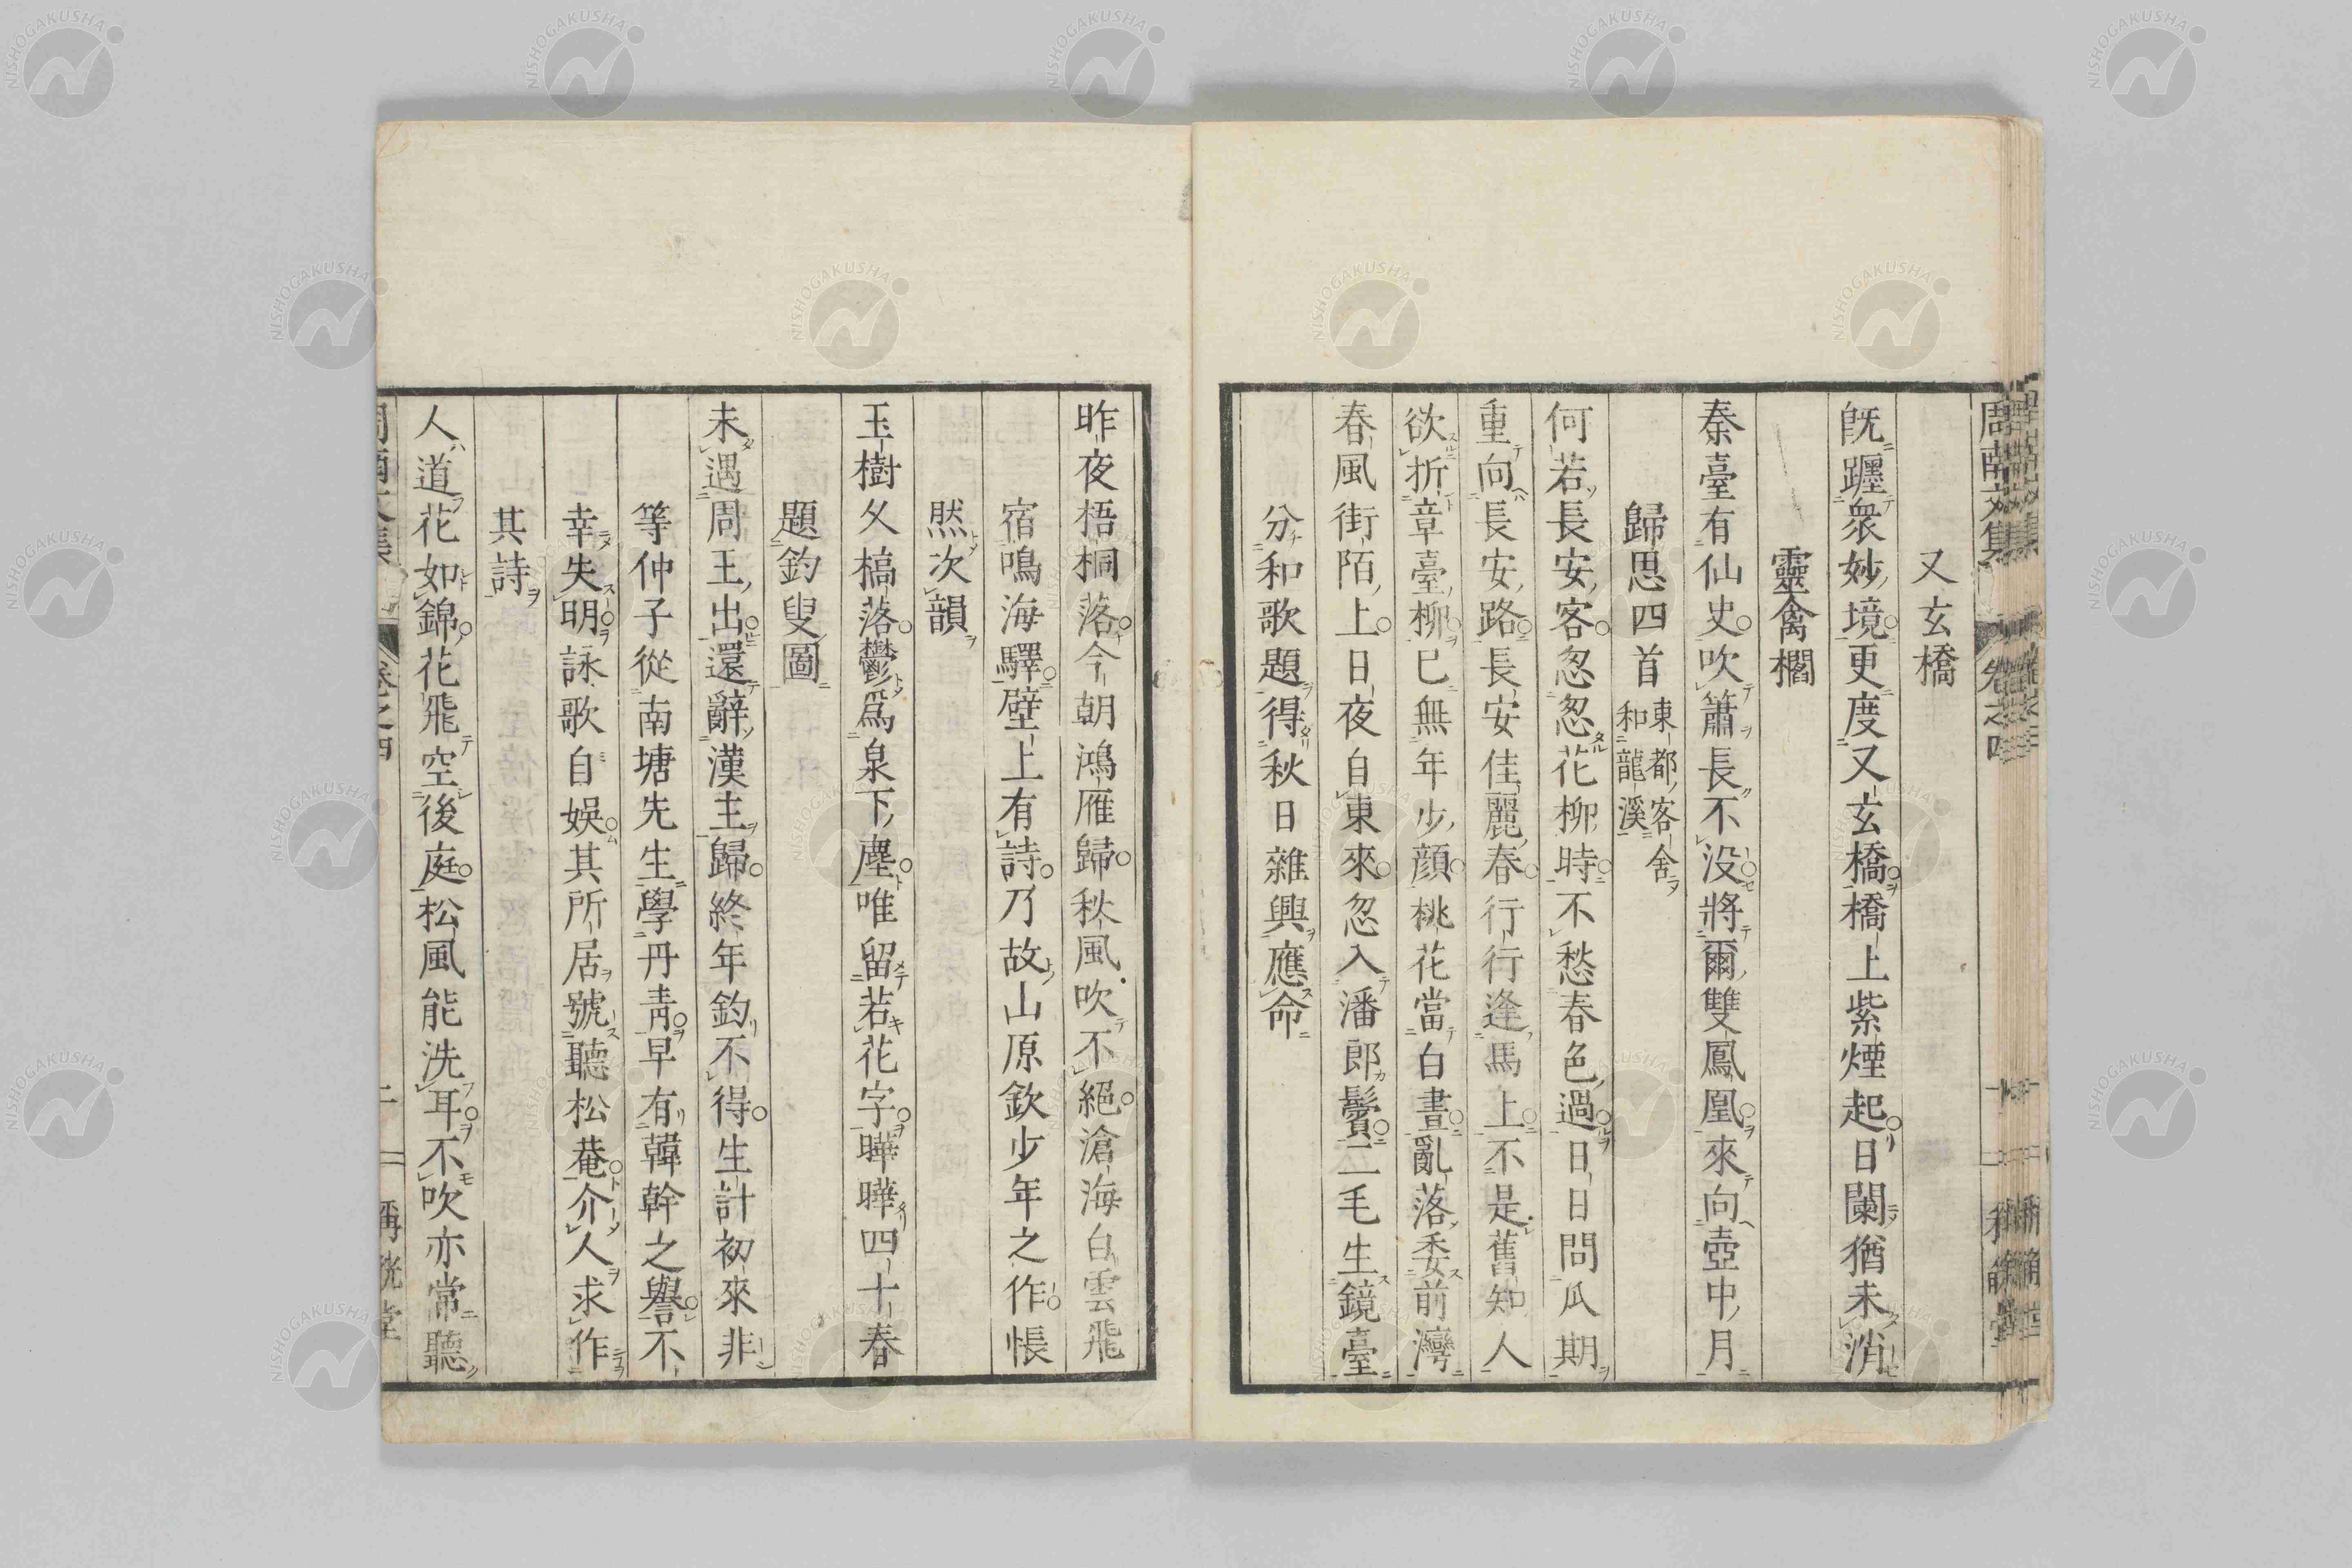 又玄橋
既躔衆妙境更度又玄橋橋上紫煙起日闌猶未消
靈禽檻
秦臺有仙史吹簫長不没將爾雙鳳凰來向壺中月
歸思四首 東都客舍和龍溪
何若長安客忽忽花柳時不愁春色過日日問瓜期
重向長安路長安佳麗春行行逢馬上不是舊知人
欲折章臺柳已無年少顔桃花當白晝亂落委前灣
春風街陌上日夜自東來忽入潘郎鬢二毛生鏡臺
分和歌題得秋日雜興應命
昨夜梧桐落今朝鴻雁歸秋風吹不絕滄海白雲飛
宿鳴海驛壁上有詩乃故山原欽少年之作悵
然次韻
玉樹久槁落鬱爲泉下塵唯留若花字曄曄四十春
題釣叟圖
未遇周王出還辭漢主歸終年釣不得生計初來非
等仲子從南塘先生學丹靑早有韓幹之譽不
幸失明詠歌自娛其所居號聽松菴介人求作
其詩
人道花如錦花飛空後庭松風能洗耳不吹亦常聽
周南文集 卷之四